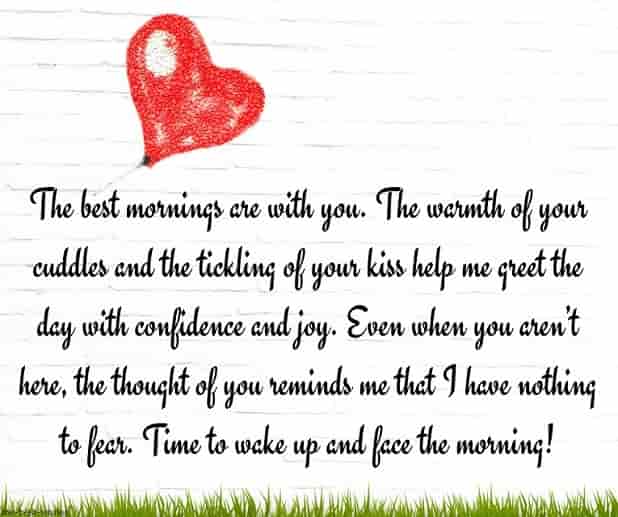 The best mornings are with you. The warmth of your
cuddles and the tickling of your kiss help me greet the
day with confidence and joy. Even when you aren't
here, the thought of you reminds me that I have nothing
to fear. Time to wake up and face the morning!